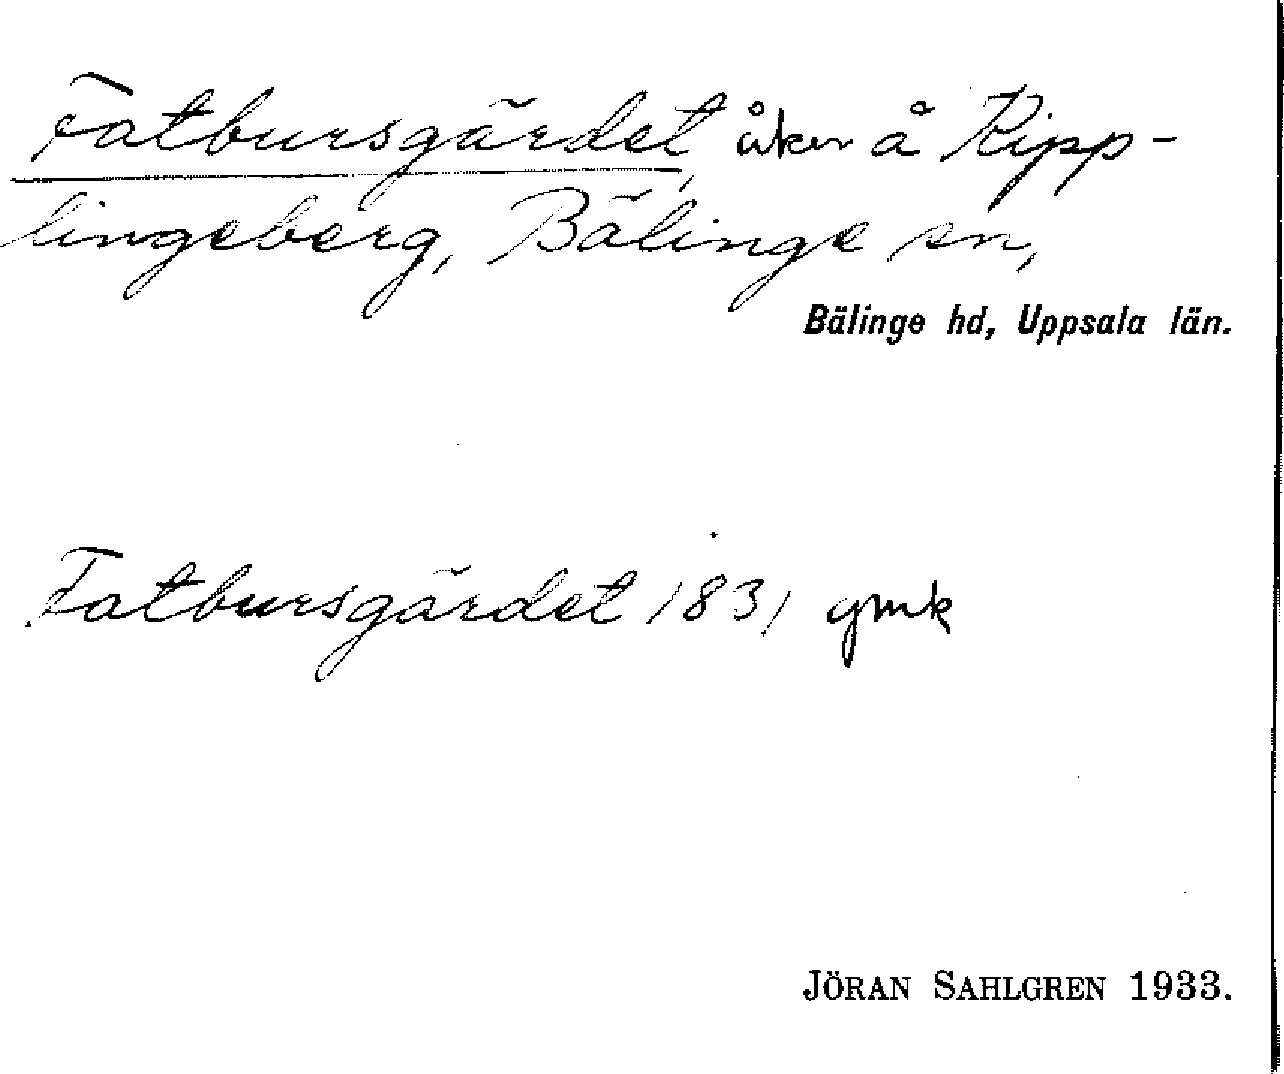 Fatbursgärdet, åker å Kipp-
lingeberg, Bälinge sn,
Bälinge hd, Uppsala län.
Fatbursgärdet 1831 gmk
JÖRAN SAHLGREN 1933.